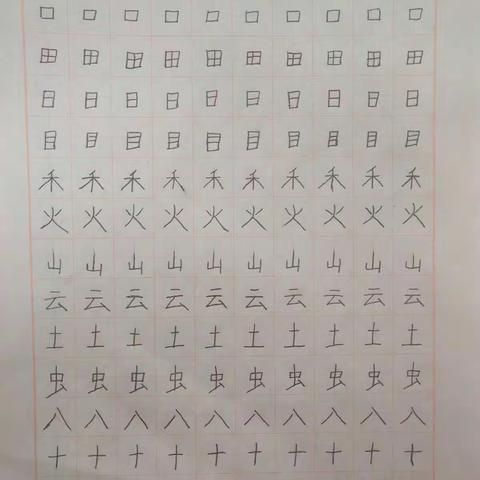 口口口口口口口口口口
田田田田田田田田田田
日日日日日日日日日日
目目目目目目目目目目
禾禾禾禾禾禾禾禾禾禾
火火火火火火火火火火
山山山山山山山山山山
云云云云云云云云云云
土土土土土土土土土土
虫虫虫虫虫虫虫虫虫虫
入入入入入入入入入入
十十十十十十十十十十